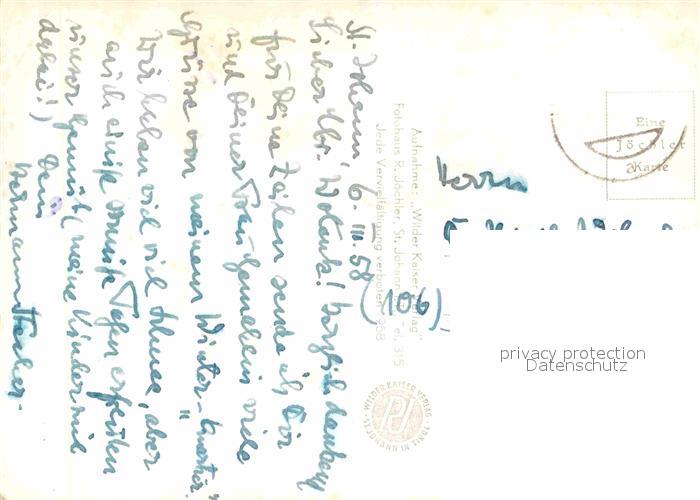 St. Johann 6. III. 58 (106)
Lieber Utz. Wotruk! herzlich dankend
für Deine Zeilen sende ich Dir
und Deiner Frau Gemahlin viele
Grüsse von meinem Winter-"Quartier".
Wir haben viel viel Schnee, aber
auch einiße sonniße Tage erfreuten
unser Gemüt (meine Kinder mit
dabei!) Dein
Hermann
Aufnahme: „Wilder Kaiser Verlag"
Fotohaus R. Jöchler, St. Johann Tel. 315
Jede Vervielfältigung verboten 968
WILDER KAISER VERLAG · ST. JOHANN IN TIROL
RJ
Eine
Jöchler
Karte
Herrn
privacy protection
Datenschutz